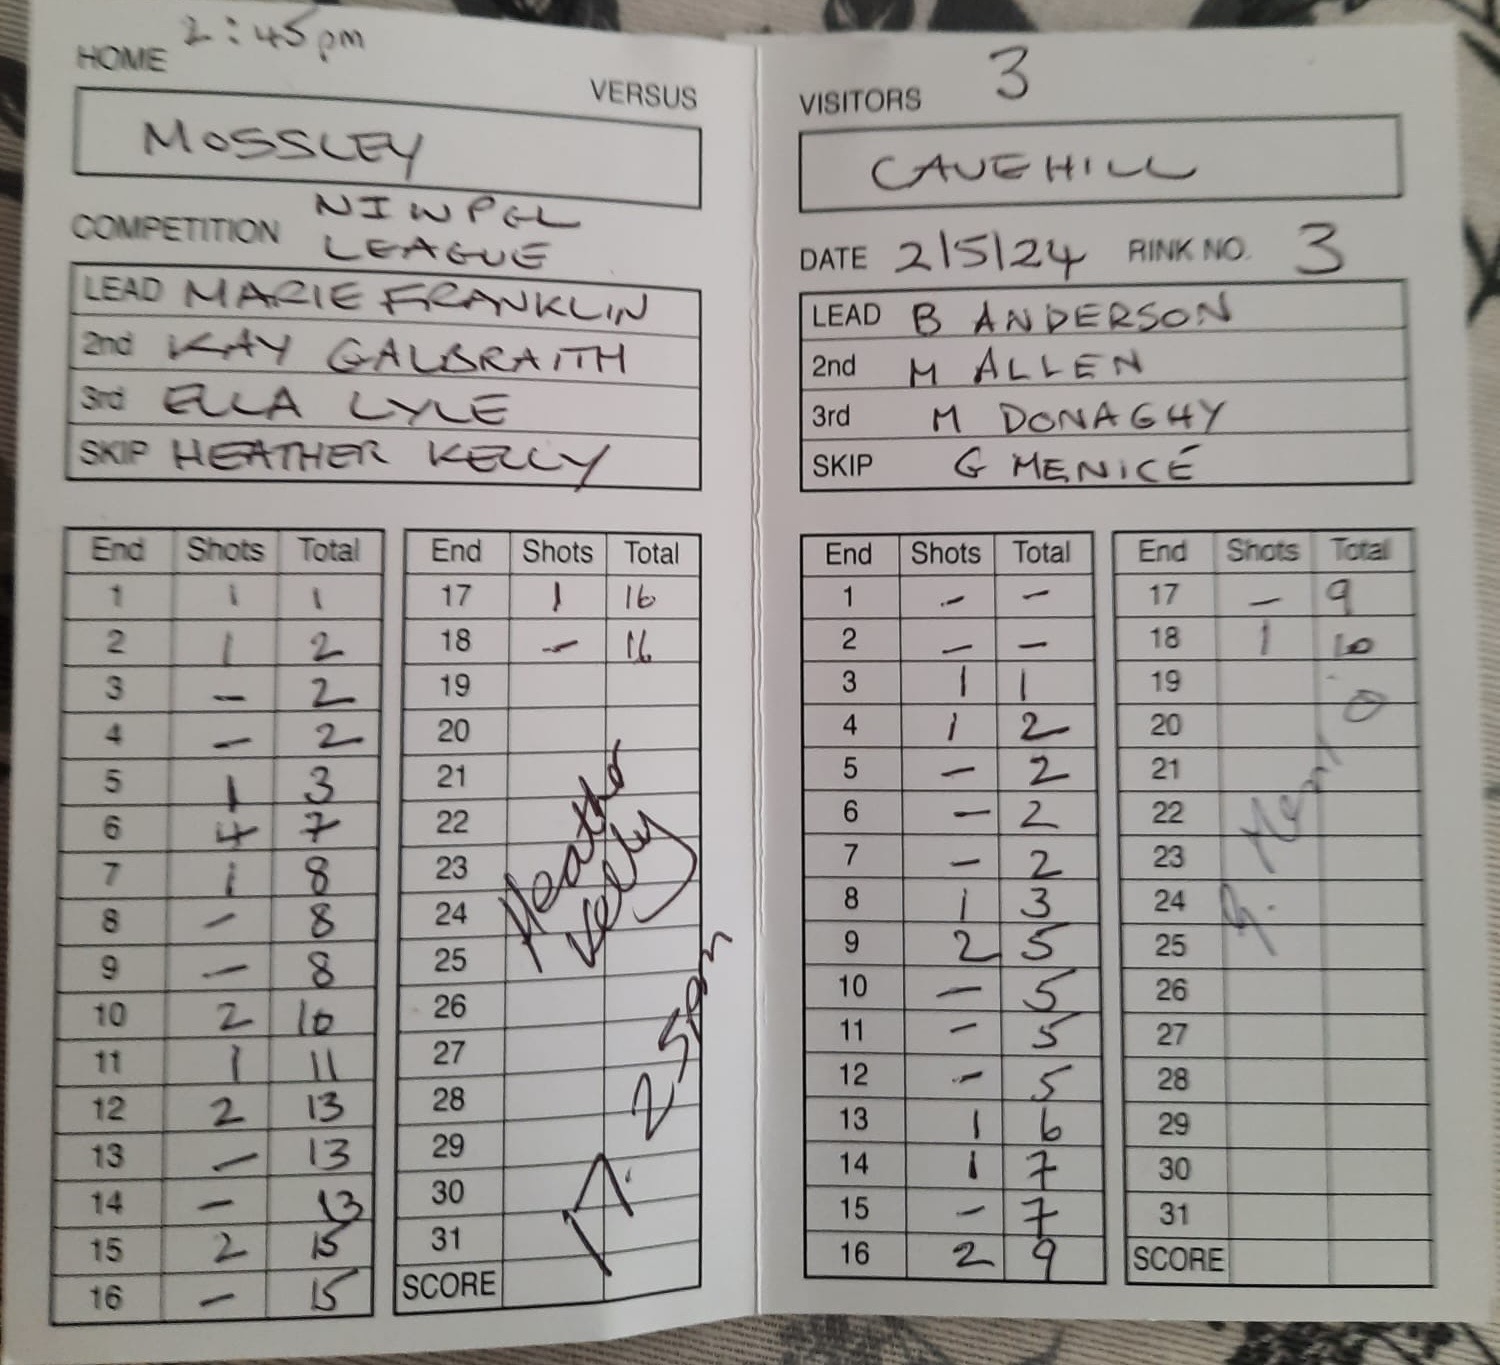 HOME 2:45pm
VERSUS
MOSSLEY
COMPETITION NIWPGL
LEAGUE
LEAD MARIE FRANKLIN
2nd KAY GALBRAITH
3rd ELLA LYLE
SKIP HEATHER KELLY
End Shots Total
1 1 1
2 1 2
3 - 2
4 - 2
5 1 3
6 4 7
7 1 8
8 - 8
9 - 8
10 2 10
11 1 11
12 2 13
13 - 13
14 - 13
15 2 15
16 - 15
End Shots Total
17 1 16
18 - 16
19
20
21
22
23
24
25
26
27
28
29
30
31
SCORE
Heather
Kelly
VISITORS 3
CAVEHILL
DATE 2/5/24 RINK NO. 3
LEAD B ANDERSON
2nd M ALLEN
3rd M DONAGHY
SKIP G MENICE
End Shots Total
1 - -
2 - -
3 1 1
4 1 2
5 - 2
6 - 2
7 - 2
8 1 3
9 2 5
10 - 5
11 - 5
12 - 5
13 1 6
14 1 7
15 - 7
16 2 9
End Shots Total
17 - 9
18 1 10
19
20
21
22
23
24
25
26
27
28
29
30
31
SCORE